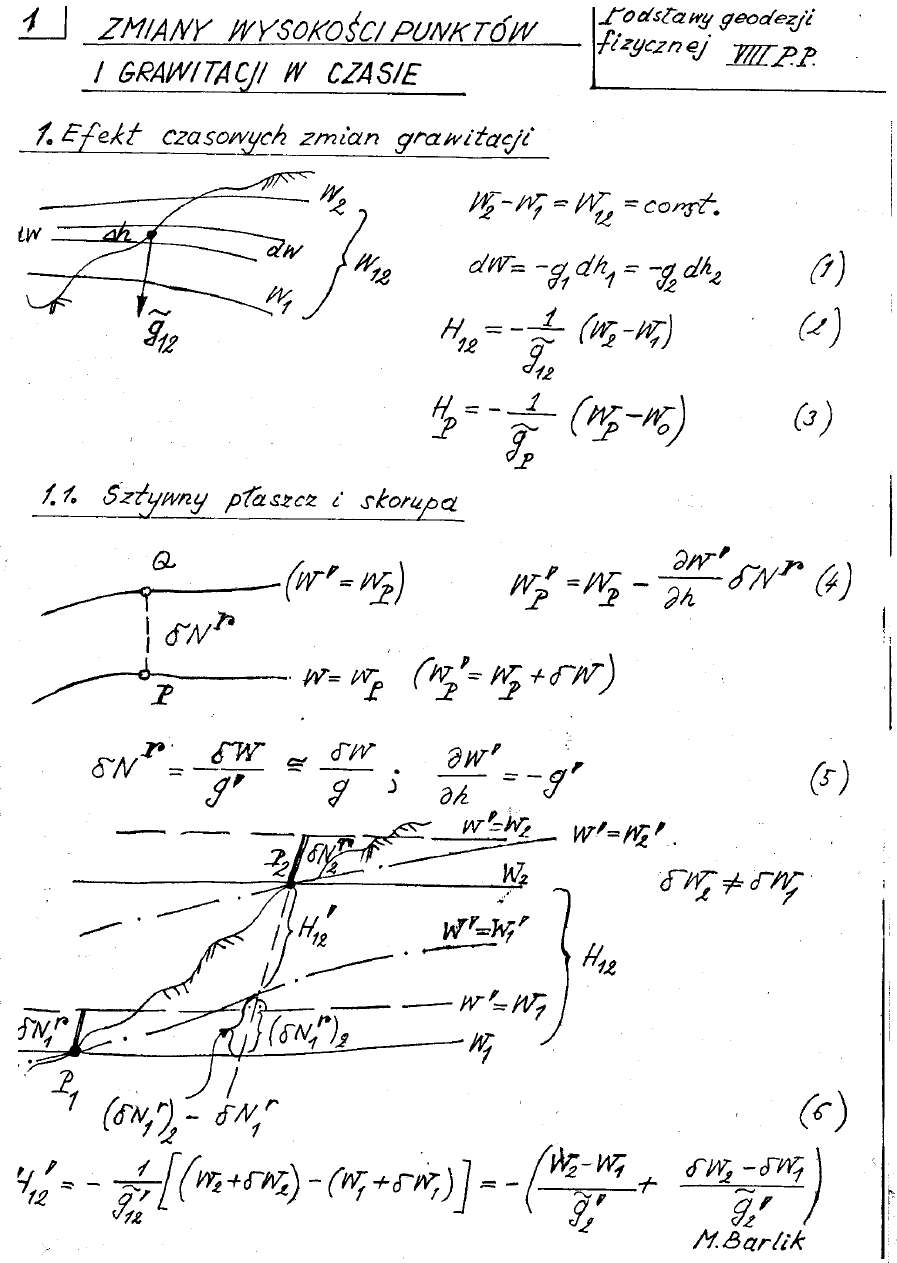 1
ZMIANY WYSOKOŚCI PUNKTÓW
I GRAWITACJI W CZASIE
Podstawy geodezji
fizycznej VIII P.P.
1. Efekt czasowych zmian grawitacji
W₂
dW
Δh
dW
W₁₂
W₁
g̃₁₂
W₂-W₁ = W₁₂ = const.
dW = -g₁ dh₁ = -g₂ dh₂ (1)
H₁₂ = - 1/g̃₁₂ (W₂-W₁) (2)
H_P = - 1/g̃_P (W_P - W₀) (3)
1.1. Sztywny płaszcz i skorupa
Q
(W' = W_P)
W'_P = W_P - ∂W'/∂h δN^r (4)
δN^r
P
W = W_P (W'_P = W_P + δW)
δN^r = δW/g' ≅ δW/g ; ∂W'/∂h = -g' (5)
W'=W₂
W'=W₂'
P₂
δN₂^r
W₂
δW₂ ≠ δW₁
H₁₂'
W'=W₁'
H₁₂
W'=W₁
δN₁^r
(δN₁^r)₂
W₁
P₁
(δN₁^r)₂ - δN₁^r
(6)
H₁₂' = - 1/g̃₁₂' [(W₂+δW₂) - (W₁+δW₁)] = - (W₂-W₁/g̃₂' + δW₂-δW₁/g̃₂')
M. Barlik